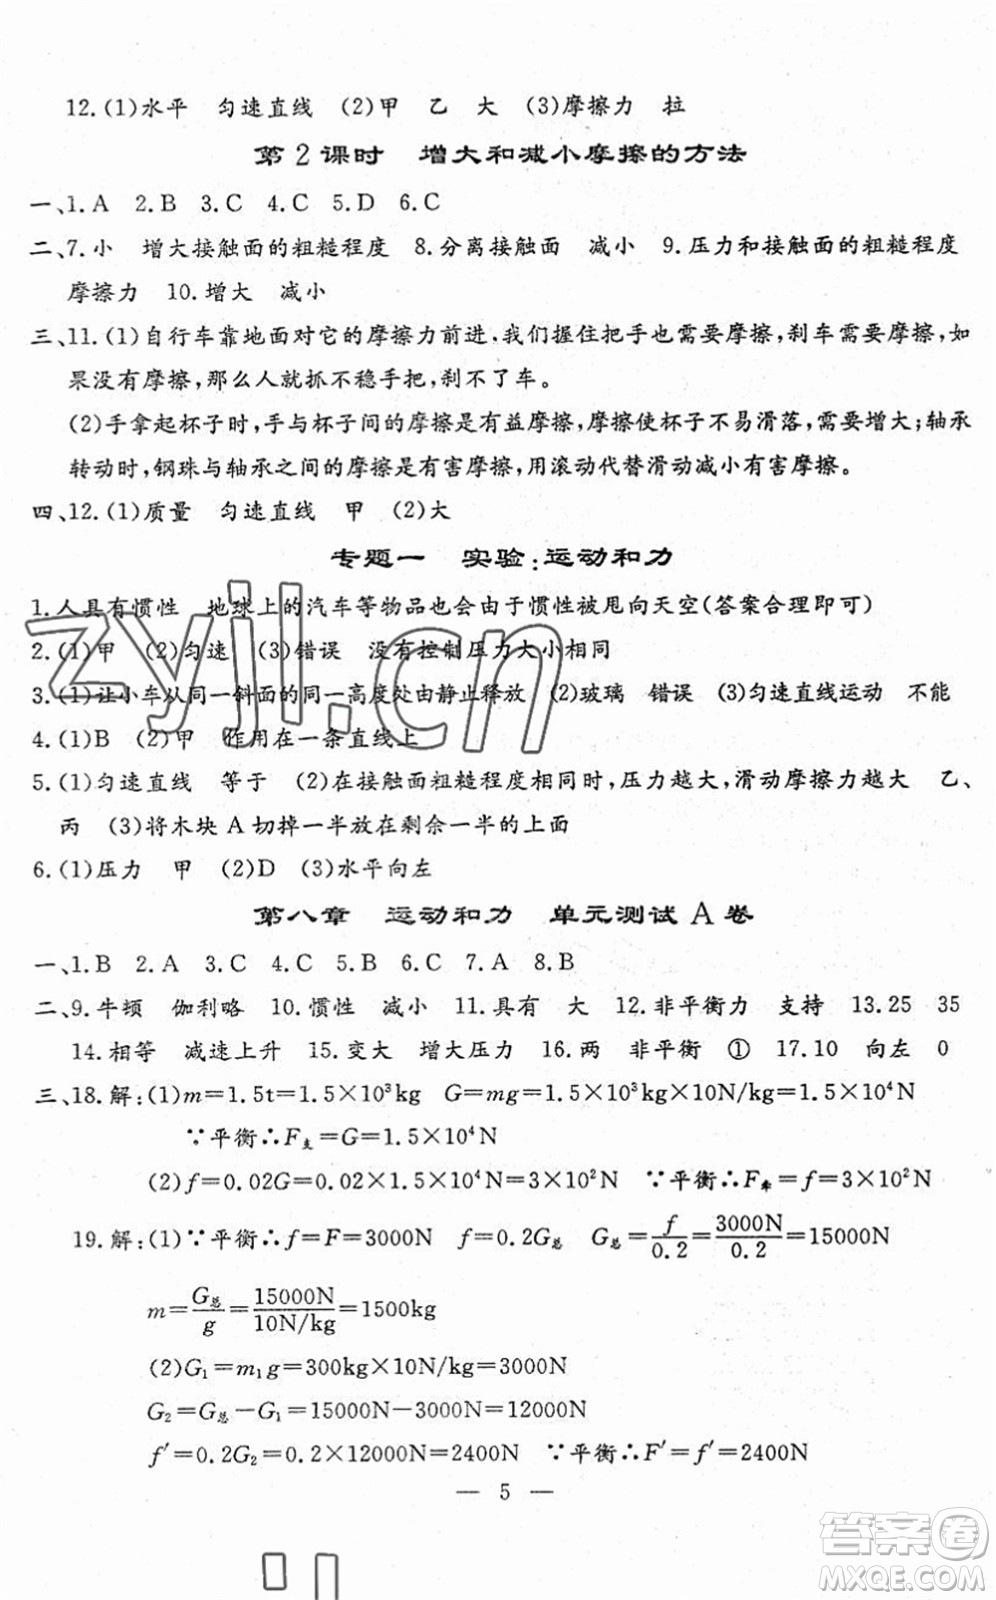 12.(1)水平 匀速直线 (2)甲 乙 大 (3)摩擦力 拉
第2课时 增大和减小摩擦的方法
一、1.A 2.B 3.C 4.C 5.D 6.C
二、7.小 增大接触面的粗糙程度 8.分离接触面 减小 9.压力和接触面的粗糙程度
摩擦力 10.增大 减小
三、11.(1)自行车靠地面对它的摩擦力前进,我们握住把手也需要摩擦,刹车需要摩擦,如
果没有摩擦,那么人就抓不稳手把,刹不了车。
(2)手拿起杯子时,手与杯子间的摩擦是有益摩擦,摩擦使杯子不易滑落,要增大;轴承
转动时,钢珠与轴承之间的摩擦是有害摩擦,用滚动代替滑动减小有害摩擦。
四、12.(1)质量 匀速直线 甲 (2)大
专题一 实验:运动和力
1.人具有惯性 地球上的汽车等物品也会由于惯性被甩向天空(答案合理即可)
2.(1)甲 (2)匀速 (3)错误 没有控制压力大小相同
3.(1)让小车从同一斜面的同一高度处由静止释放 (2)玻璃 错误 (3)匀速直线运动 不能
4.(1)B (2)甲 作用在一条直线上
5.(1)匀速直线 等于 (2)在接触面粗糙程度相同时,压力越大,滑动摩擦力越大 乙、
丙 (3)将木块A切掉一半放在剩余一半的上面
6.(1)压力 甲 (2)D (3)水平向左
第八章 运动和力 单元测试A卷
一、1.B 2.A 3.C 4.C 5.B 6.C 7.A 8.B
二、9.牛顿 伽利略 10.惯性 减小 11.具有 大 12.非平衡力 支持 13.25 35
14.相等 减速上升 15.变大 增大压力 16.两 非平衡 ① 17.10 向左 0
三、18.解:(1)m=1.5t=1.5×10³kg G=mg=1.5×10³kg×10N/kg=1.5×10⁴N
∵平衡∴F支=G=1.5×10⁴N
(2)f=0.02G=0.02×1.5×10⁴N=3×10²N ∵平衡∴F牵=f=3×10²N
19.解:(1)∵平衡∴f=F=3000N f=0.2G总 G总=f/0.2=3000N/0.2=15000N
m=G总/g=15000N/10N/kg=1500kg
(2)G₁=m₁g=300kg×10N/kg=3000N
G₂=G总-G₁=15000N-3000N=12000N
f′=0.2G₂=0.2×12000N=2400N ∵平衡∴F′=f′=2400N
— 5 —
zyjl.cn
答案圈
MXQE.COM